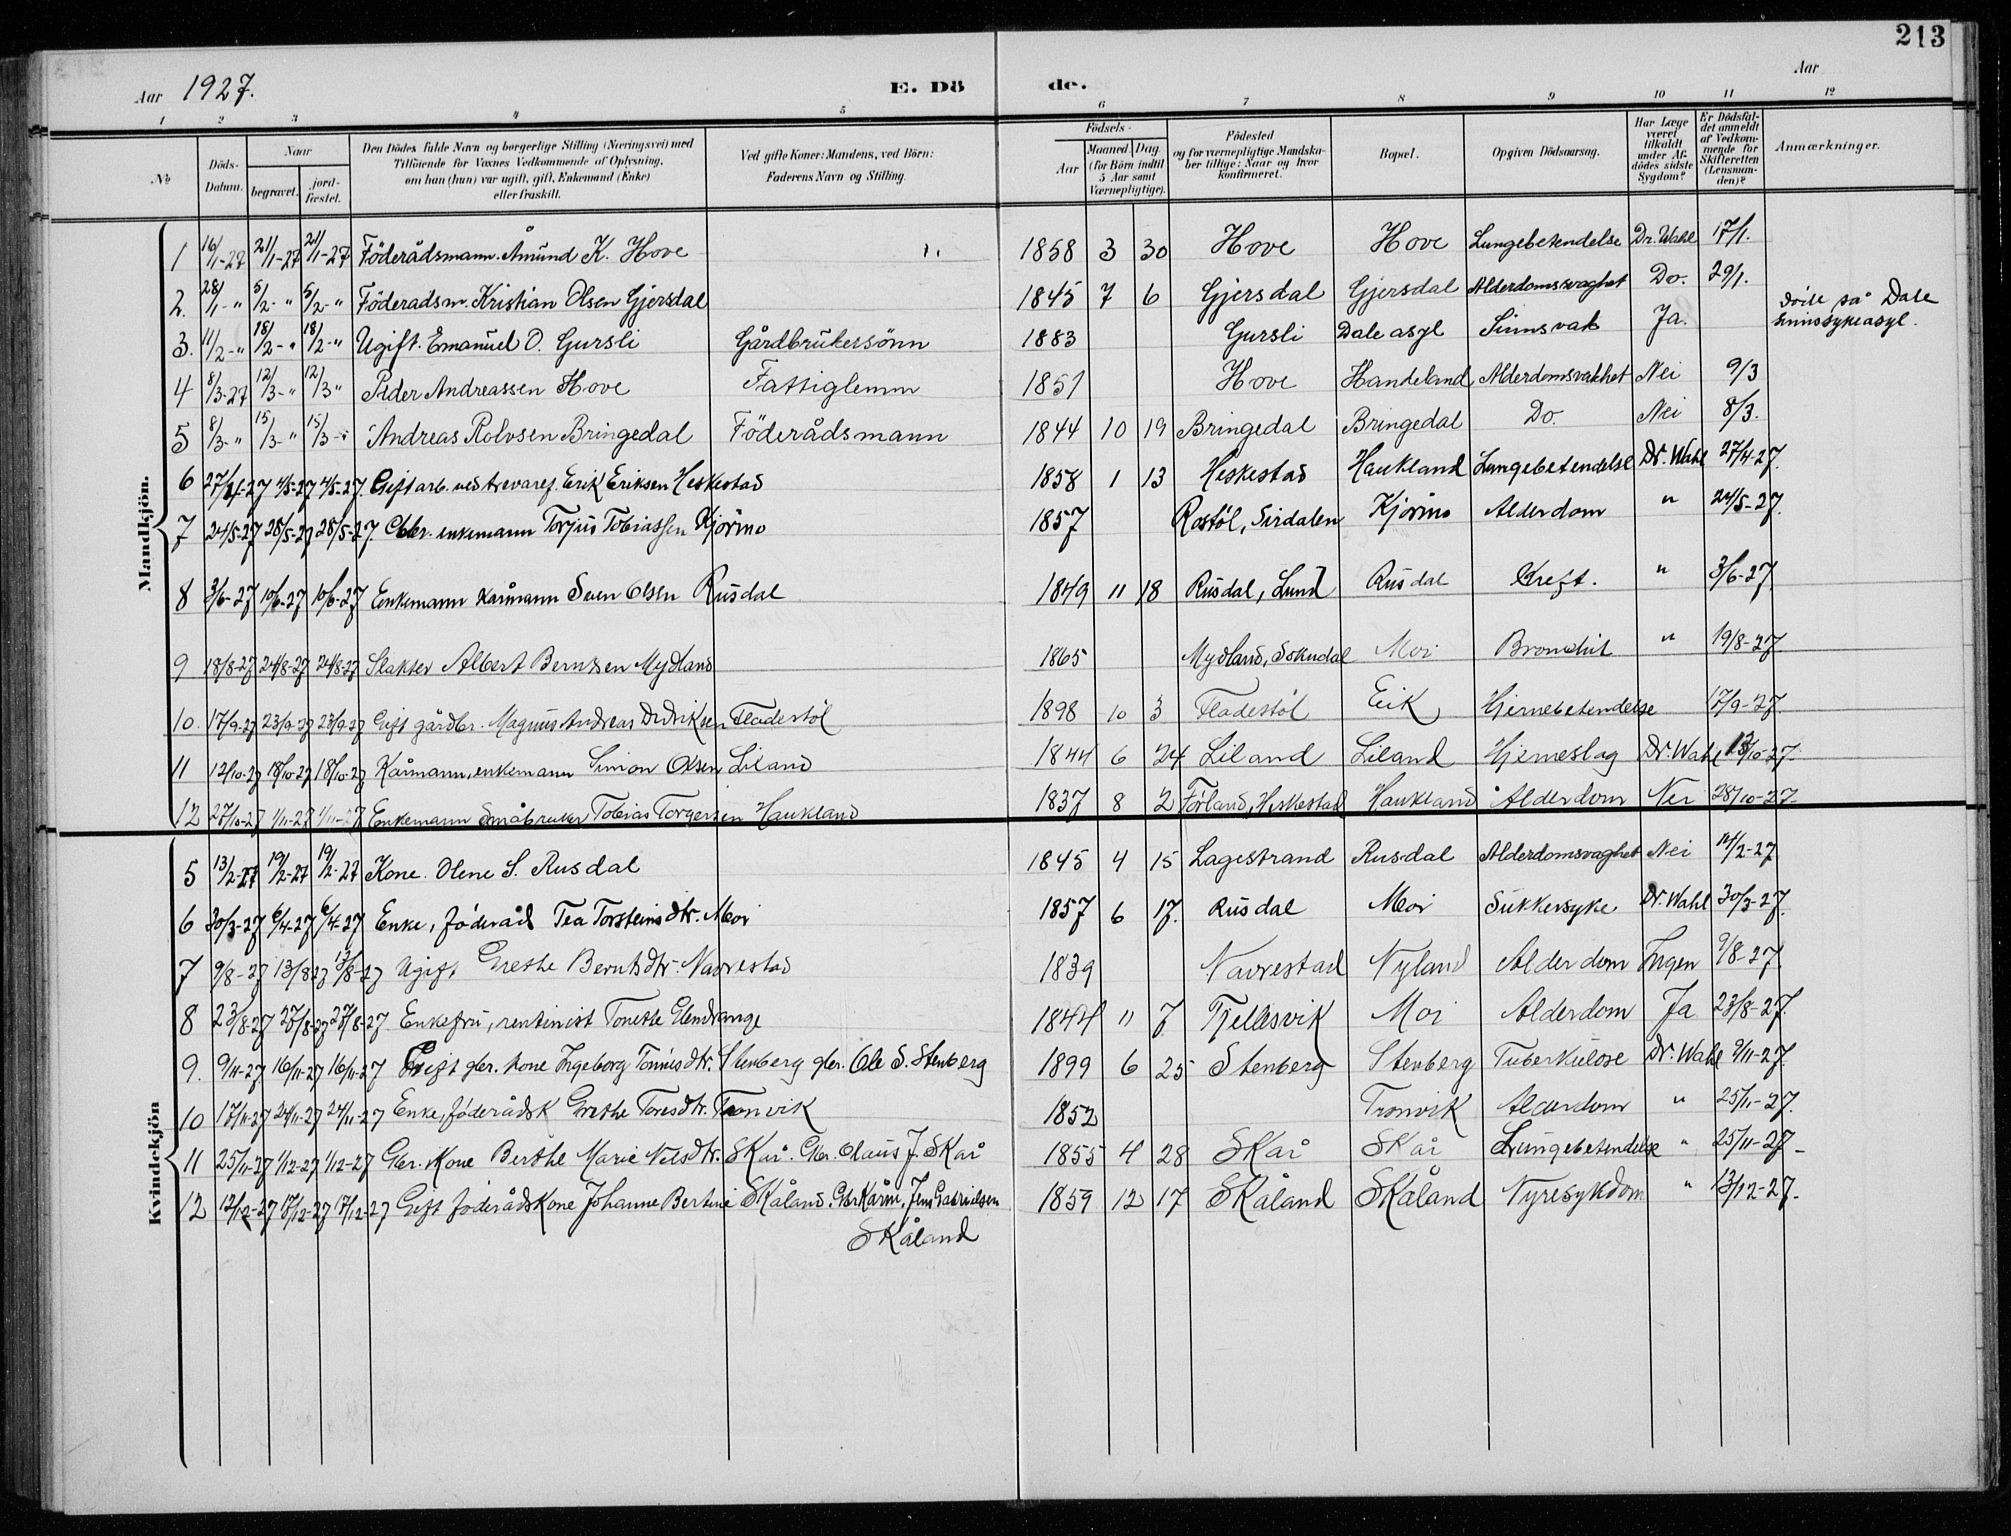 213
Aar 1927. E. Dö de. Aar
1 2 3 4 5 6 7 8 9 10 11 12
№ Döds-Datum. Naar begravet. jord-fæstet. Den Dödes fulde Navn og borgerlige Stilling (Næringsvei) med Tilföiende for Voxnes Vedkommende af Oplysning, om han (hun) var ugift, gift, Enkemand (Enke) eller fraskilt. Ved gifte Koner: Mandens, ved Börn: Faderens Navn og Stilling. Födsels- Aar Maaned. Dag. (for Börn indtil 5 Aar samt Værnepligtige). Födested og for værnepligtige Mandskaber tillige: Naar og hvor konfirmeret. Bopæl. Opgiven Dödsaarsag. Har Læge været tilkaldt under Afdödes sidste Sygdom? Er Dödsfaldet anmeldt af Vedkommende for Skifteretten (Lensmanden)? Anmærkninger.
Mandkjön.
1 16/1-27 21/1-27 21/1-27 Föderådsmann Åmund K. Hove 1858 3 30 Hove Hove Lungebetendelse Dr. Wahl 17/1.
2. 28/1-" 5/2-" 5/2-" Föderadsm. Kristian Olsen Gjersdal 1845 7 6 Gjersdal Gjersdal Alderdomssvaghet Do. 29/1.
3. 11/2-" 18/2-" 18/2-" Ugift. Emanuel O. Gursli Gårdbrukersönn 1883 Gursli Dale asyl Sinnsvak Ja. döde på Dale sinnssykeasyl.
4 8/3-27 12/3-" 12/3" Peder Andreassen Hove Fattiglemm 1851 Hove Handeland Alderdomsvakhet Nei 9/3
5 8/3-" 15/3-" 15/3-" Andreas Rolvsen Bringedal Föderådsmann 1844 10 19 Bringedal Bringedal Do. Nei 8/3.
6 27/4-27 4/5-27 4/5-27. Gift arb. ved trevaref. Erik Eriksen Heskestad 1858 1 13 Heskestad Haukland Lungebetendelse Dr. Wahl 27/4-27.
7 24/5-27 28/5-27 28/5-27. enkemann Torjus Tobiassen Kjörmo 1857 Rostöl, Sirdalen Kjörmo Alderdom " 24/5-27.
8 3/6-27 10/6-27 10/6-27 Enkemann kårmann Sven Olsen Rusdal 1849 11 18 Rusdal, Lund Rusdal Kreft. " 3/6-27.
9 18/8-27 24/8-27 24/8-27 Slakter Albert Berntsen Mydland 1865 Mydland, Sokndal Moi Bronchit " 19/8-27.
10. 17/9-27 23/9-27 23/9-27 Gift gårdbr. Magnus Andreas Didriksen Fladestöl 1898 10 3 Fladestöl Eik Hjernebetendelse 17/9-27.
11 12/10-27 18/10-27 18/10-27 Kårmann, enkemann Simon Olsen Liland 1844 6 24 Liland Liland Hjerneslag Dr. Wahl 13/10-27.
12 27/10-27 1/11-27 1/11-27 Enkemann småbruker Tobias Torgersen Haukland 1837 8 2 Förland, Heskestad Haukland Alderdom Nei 28/10-27.
Kvindekjön
5 13/2-27 19/2-27 19/2-27 Kone Olene S. Rusdal 1845 4 15 Lagestrand Rusdal Alderdomsvaghet Nei 14/2-27
6 30/3-27 6/4-27 6/4-27 Enke, föderåd Tea Torsteinsdtr. Moi 1857 6 17. Rusdal Moi Sukkersyke Dr. Wahl 30/3-27.
7 9/8-27 13/8-27 13/8-27 Ugift Grethe Berntsdtr. Navrestad 1839 Navrestad Nyland Alderdom Ingen 9/8-27.
8 23/8-27 27/8-27 27/8-27. Enkefru, rentenist Tonethe Glendrange 1844 11 7 Tjellesvik Moi Alderdom Ja 23/8-27.
9. 9/11-27 16/11-27 16/11-27 Gift gbr. kone Ingeborg Tönnesdtr. Stenberg gbr. Ole S. Stenberg 1899 6 25 Stenberg Stenberg Tuberkulose Dr. Wahl 9/11-27.
10 17/11-27 24/11-27 24/11-27 Enke, föderådsk Grethe Toresdtr. Tronvik 1852 Tronvik Alderdom " 25/11-27.
11 25/11-27 1/12-27 1/12-27 Gbr. Kone Berthe Marie Nilsdtr. Skår. Gbr. Olaus J. Skår 1855 4 28 Skår Skår Lungebetendelse " 25/11-27-
12 12/12-27 17/12-27 17/12-27 Gift föderådskone Johanne Bertine Skåland. Gbr Kårm. Jens Gabrielsen 1859 12 17 Skåland Skåland Nyresykdom " 13/12-27.-
Skåland